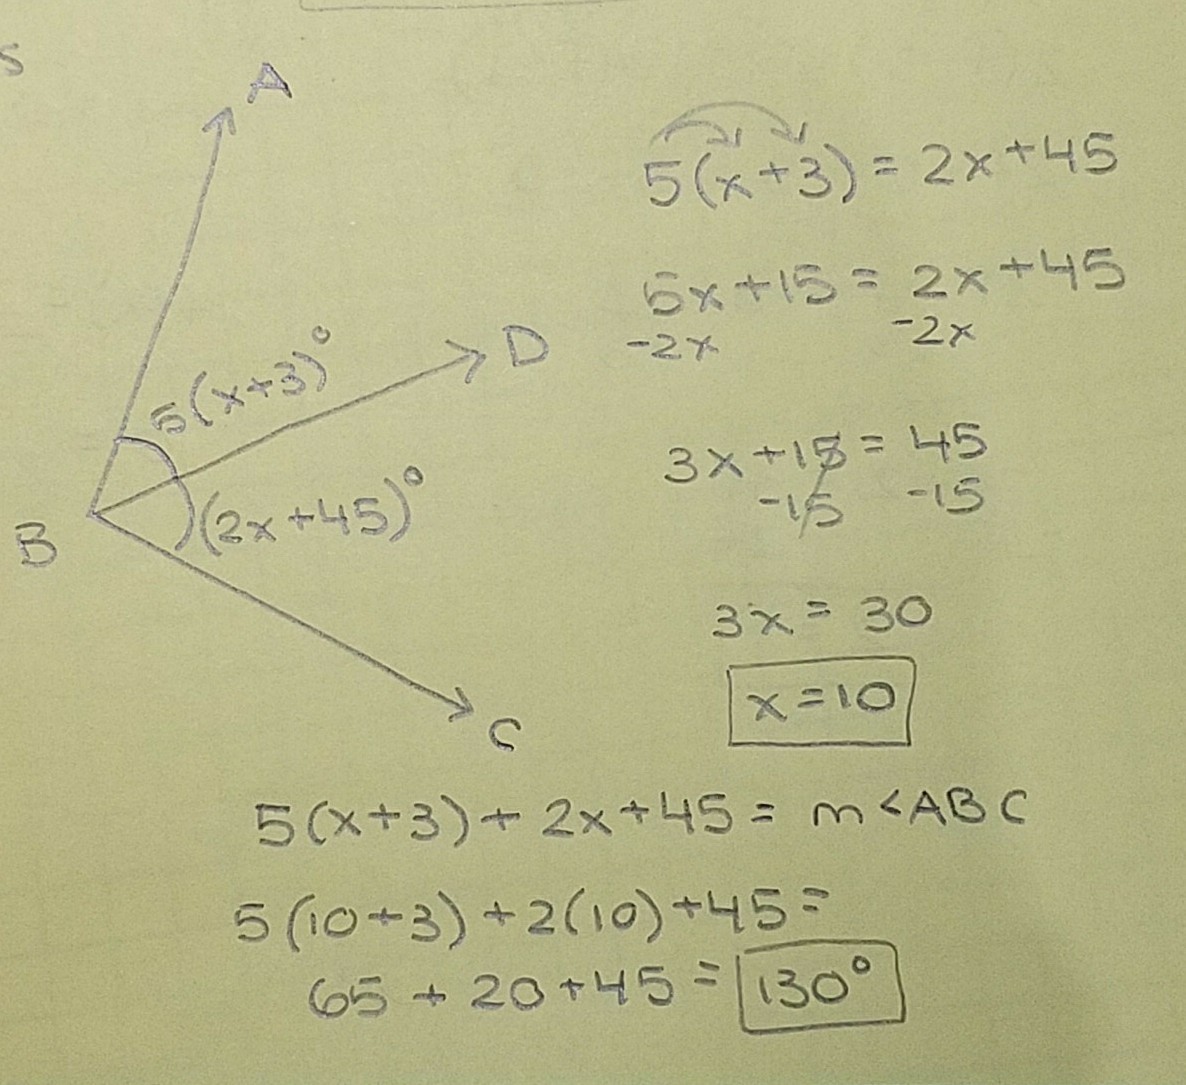 s
A
5(x+3) = 2x+45
5x+15 = 2x+45
-2x -2x
D
5(x+3)°
3x+15 = 45
-15 -15
(2x+45)°
B
3x = 30
x=10
C
5(x+3) + 2x+45 = m<ABC
5(10+3) +2(10)+45=
65 + 20+45 = 130°